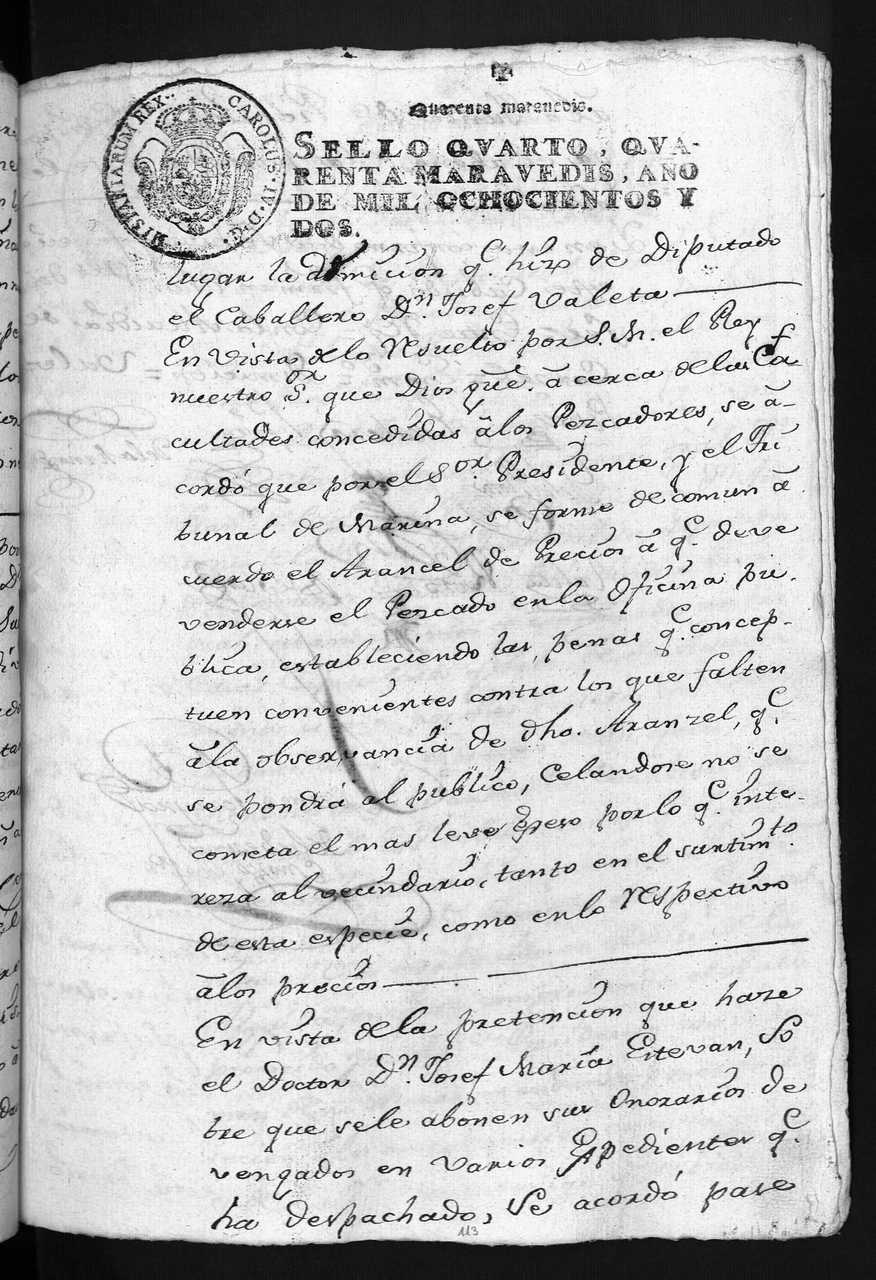 ✝
Quarenta marauedis.
HISPANIARUM REX. CAROLUS. IV. D. G.
SELLO QVARTO, QVA-
RENTA MARAVEDIS, AÑO
DE MIL OCHOCIENTOS Y
DOS.
lugar la dimicion q.e hizo de Diputado
el Caballero D.n Josef Valeta
En vista de lo resuelto por S. M. el Rey
nuestro S.or que Dios gue. à cerca de las Fa-
cultades concedidas à los Pezcadores, se a-
cordó que por el S.or Presidente, y el Tri
bunal de Marina, se forme de comun à
cuerdo el Arancel de Precios à q.e deve
venderse el Pezcado en la Oficina pu-
blica, estableciendo las penas q.e concep-
tuen convenientes contra los que falten
à la observancia de dho. Aranzel, q.e
se pondrá al publico, Celandose no se
cometa el mas leve exeso por lo q.e inte-
reza al vecindario, tanto en el surtim.to
de esta especie, como en lo respectivo
à los precios
En vista de la pretencion que haze
el Doctor D.n Josef Maria Estevan, So
bre que se le abonen sus Onorarios de
vengados en varios Expedientes q.e
ha despachado, Se acordó pase
113